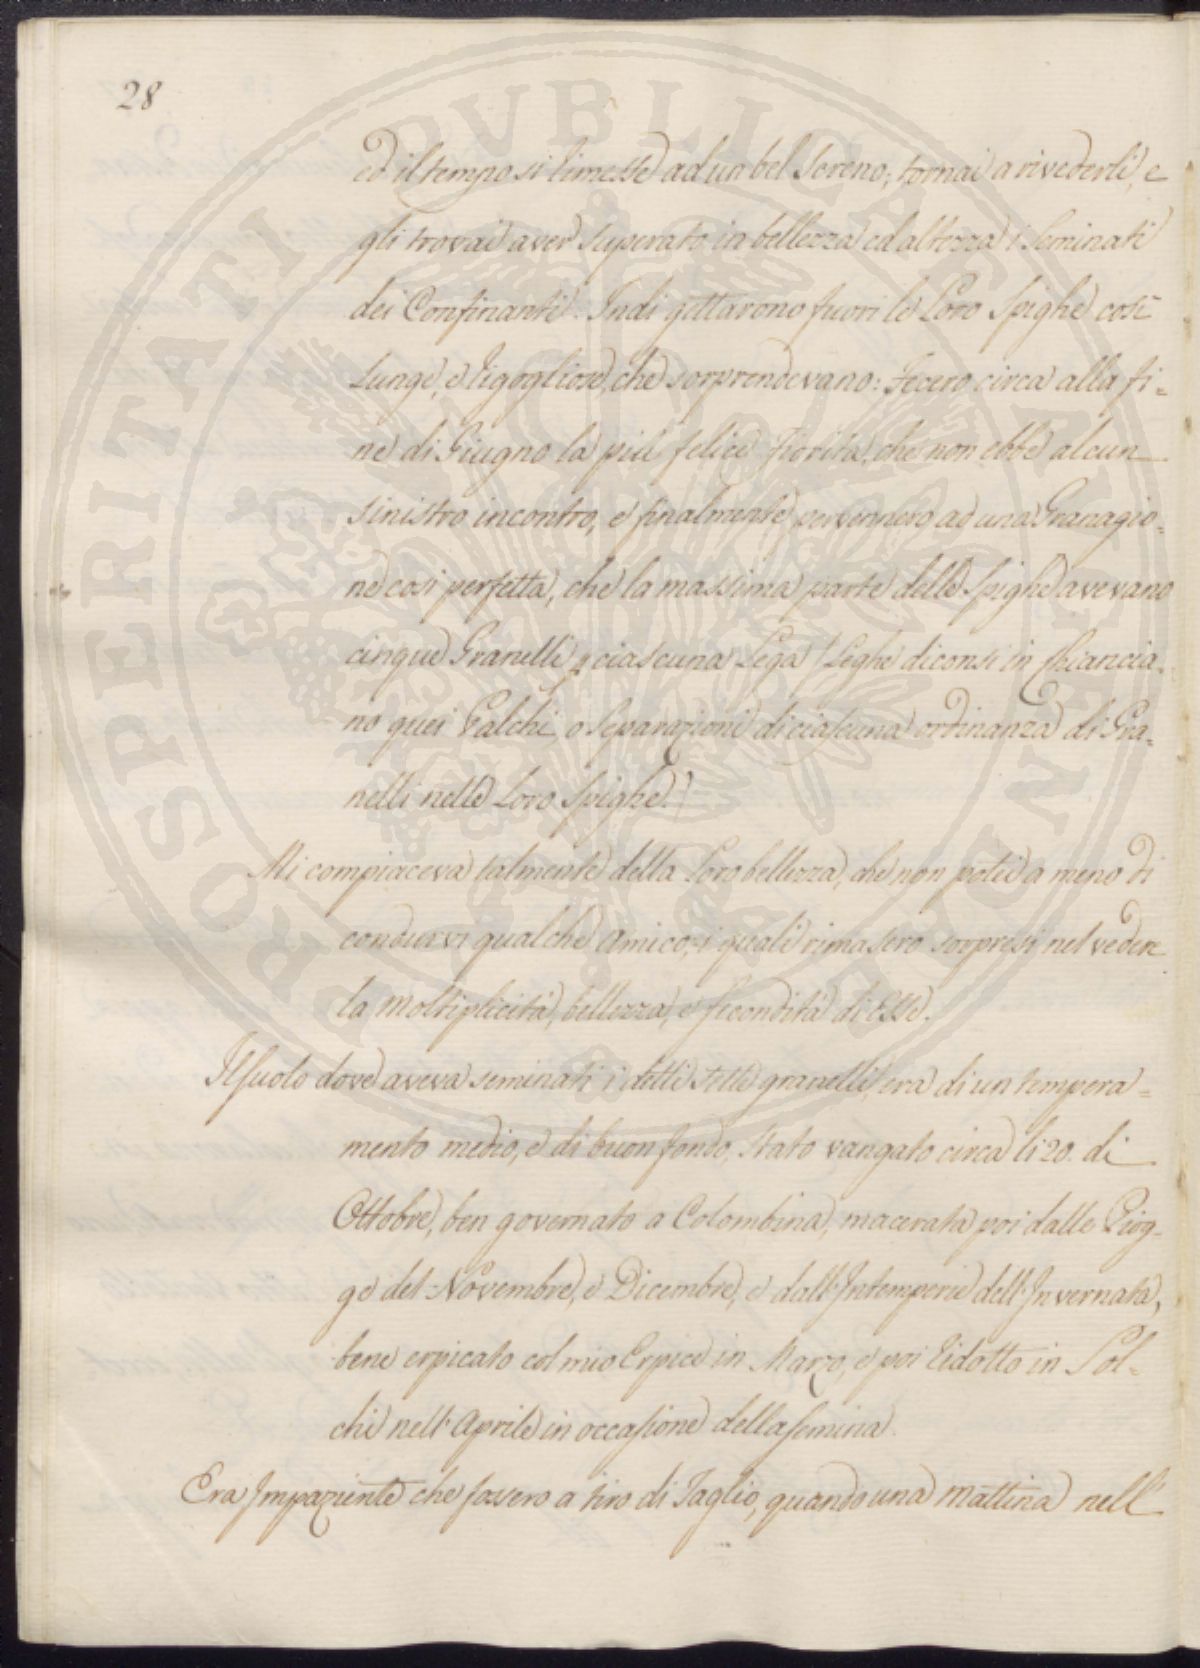 28
ed il tempo si rimesse ad un bel sereno; tornai a rivederli, e
gli trovai aver superato in bellezza ed altezza i Seminati
dei Confinanti. Indi gettarono fuori le Loro Spighe così
lunge, e rigogliose, che sorprendevano: Fecero circa alla fi=
ne di Giugno la più felice fiorita, che non ebbe alcun
sinistro incontro, e finalmente pervennero ad una Granagio=
ne così perfetta, che la massima parte delle Spighe avevano
cinque Granelli p ciascuna Lega (Leghe diconsi in Chiancia=
no quei Palchi, o Separazioni di ciascuna ordinanza di Gra=
nelli nelle Loro Spighe.)
Mi compiaceva talmente della Loro bellezza, che non potei a meno di
condurvi qualche Amico, i quali rimasero sorpresi nel vedere
la moltiplicità, bellezza, e fecondità di Esse.
Il suolo dove aveva seminati i detti sette granelli, era di un tempera=
mento medio, e di buon fondo, stato vangato circa li 20. di
Ottobre, ben governato a Colombina, macerata poi dalle Piog=
ge del Novembre, e Dicembre, e dall'Intemperie dell'Invernata,
bene erpicato col mio Erpice in Marzo, e poi ridotto in Sol=
chi nell'Aprile in occasione della semina.
Era Impaziente che fossero a tiro di Taglio, quando una mattina nell'
PROSPERITATI PVBLICAE AVGENDAE